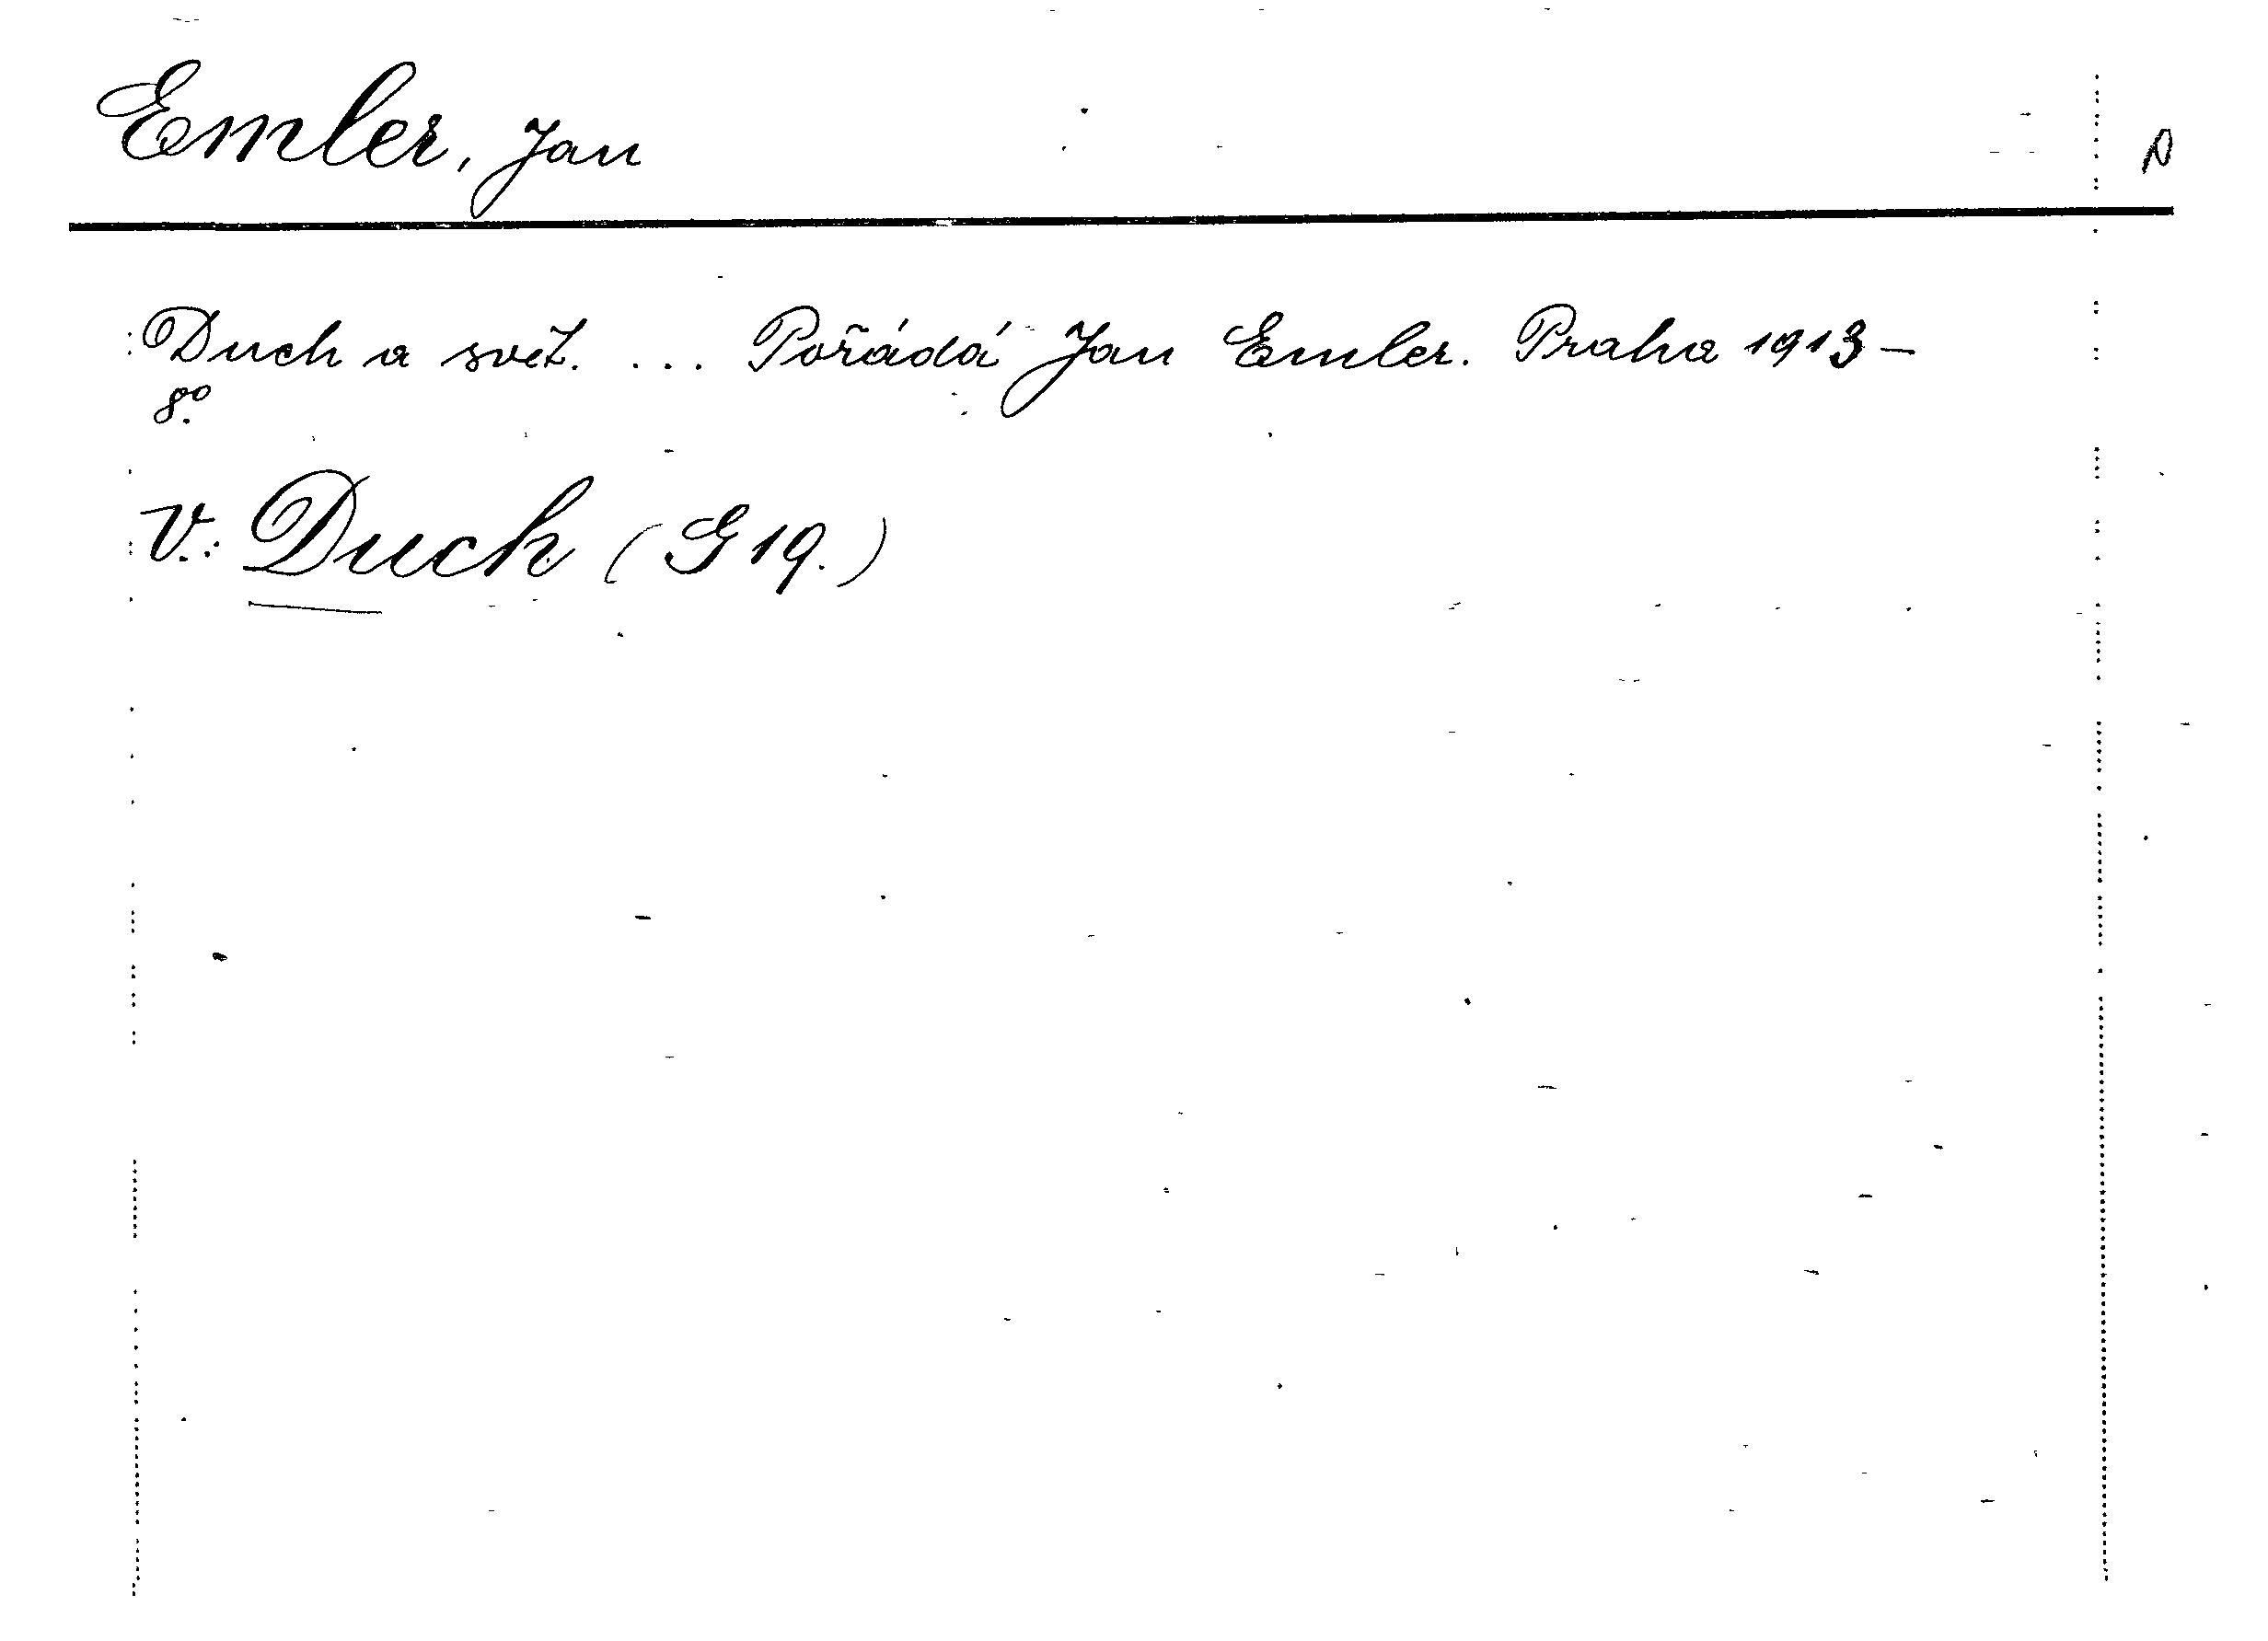 Emler, Jan
Duch a svět. ... Pořádá Jan Emler. Praha 1913-
8º.
V.: Duch (G 19.)